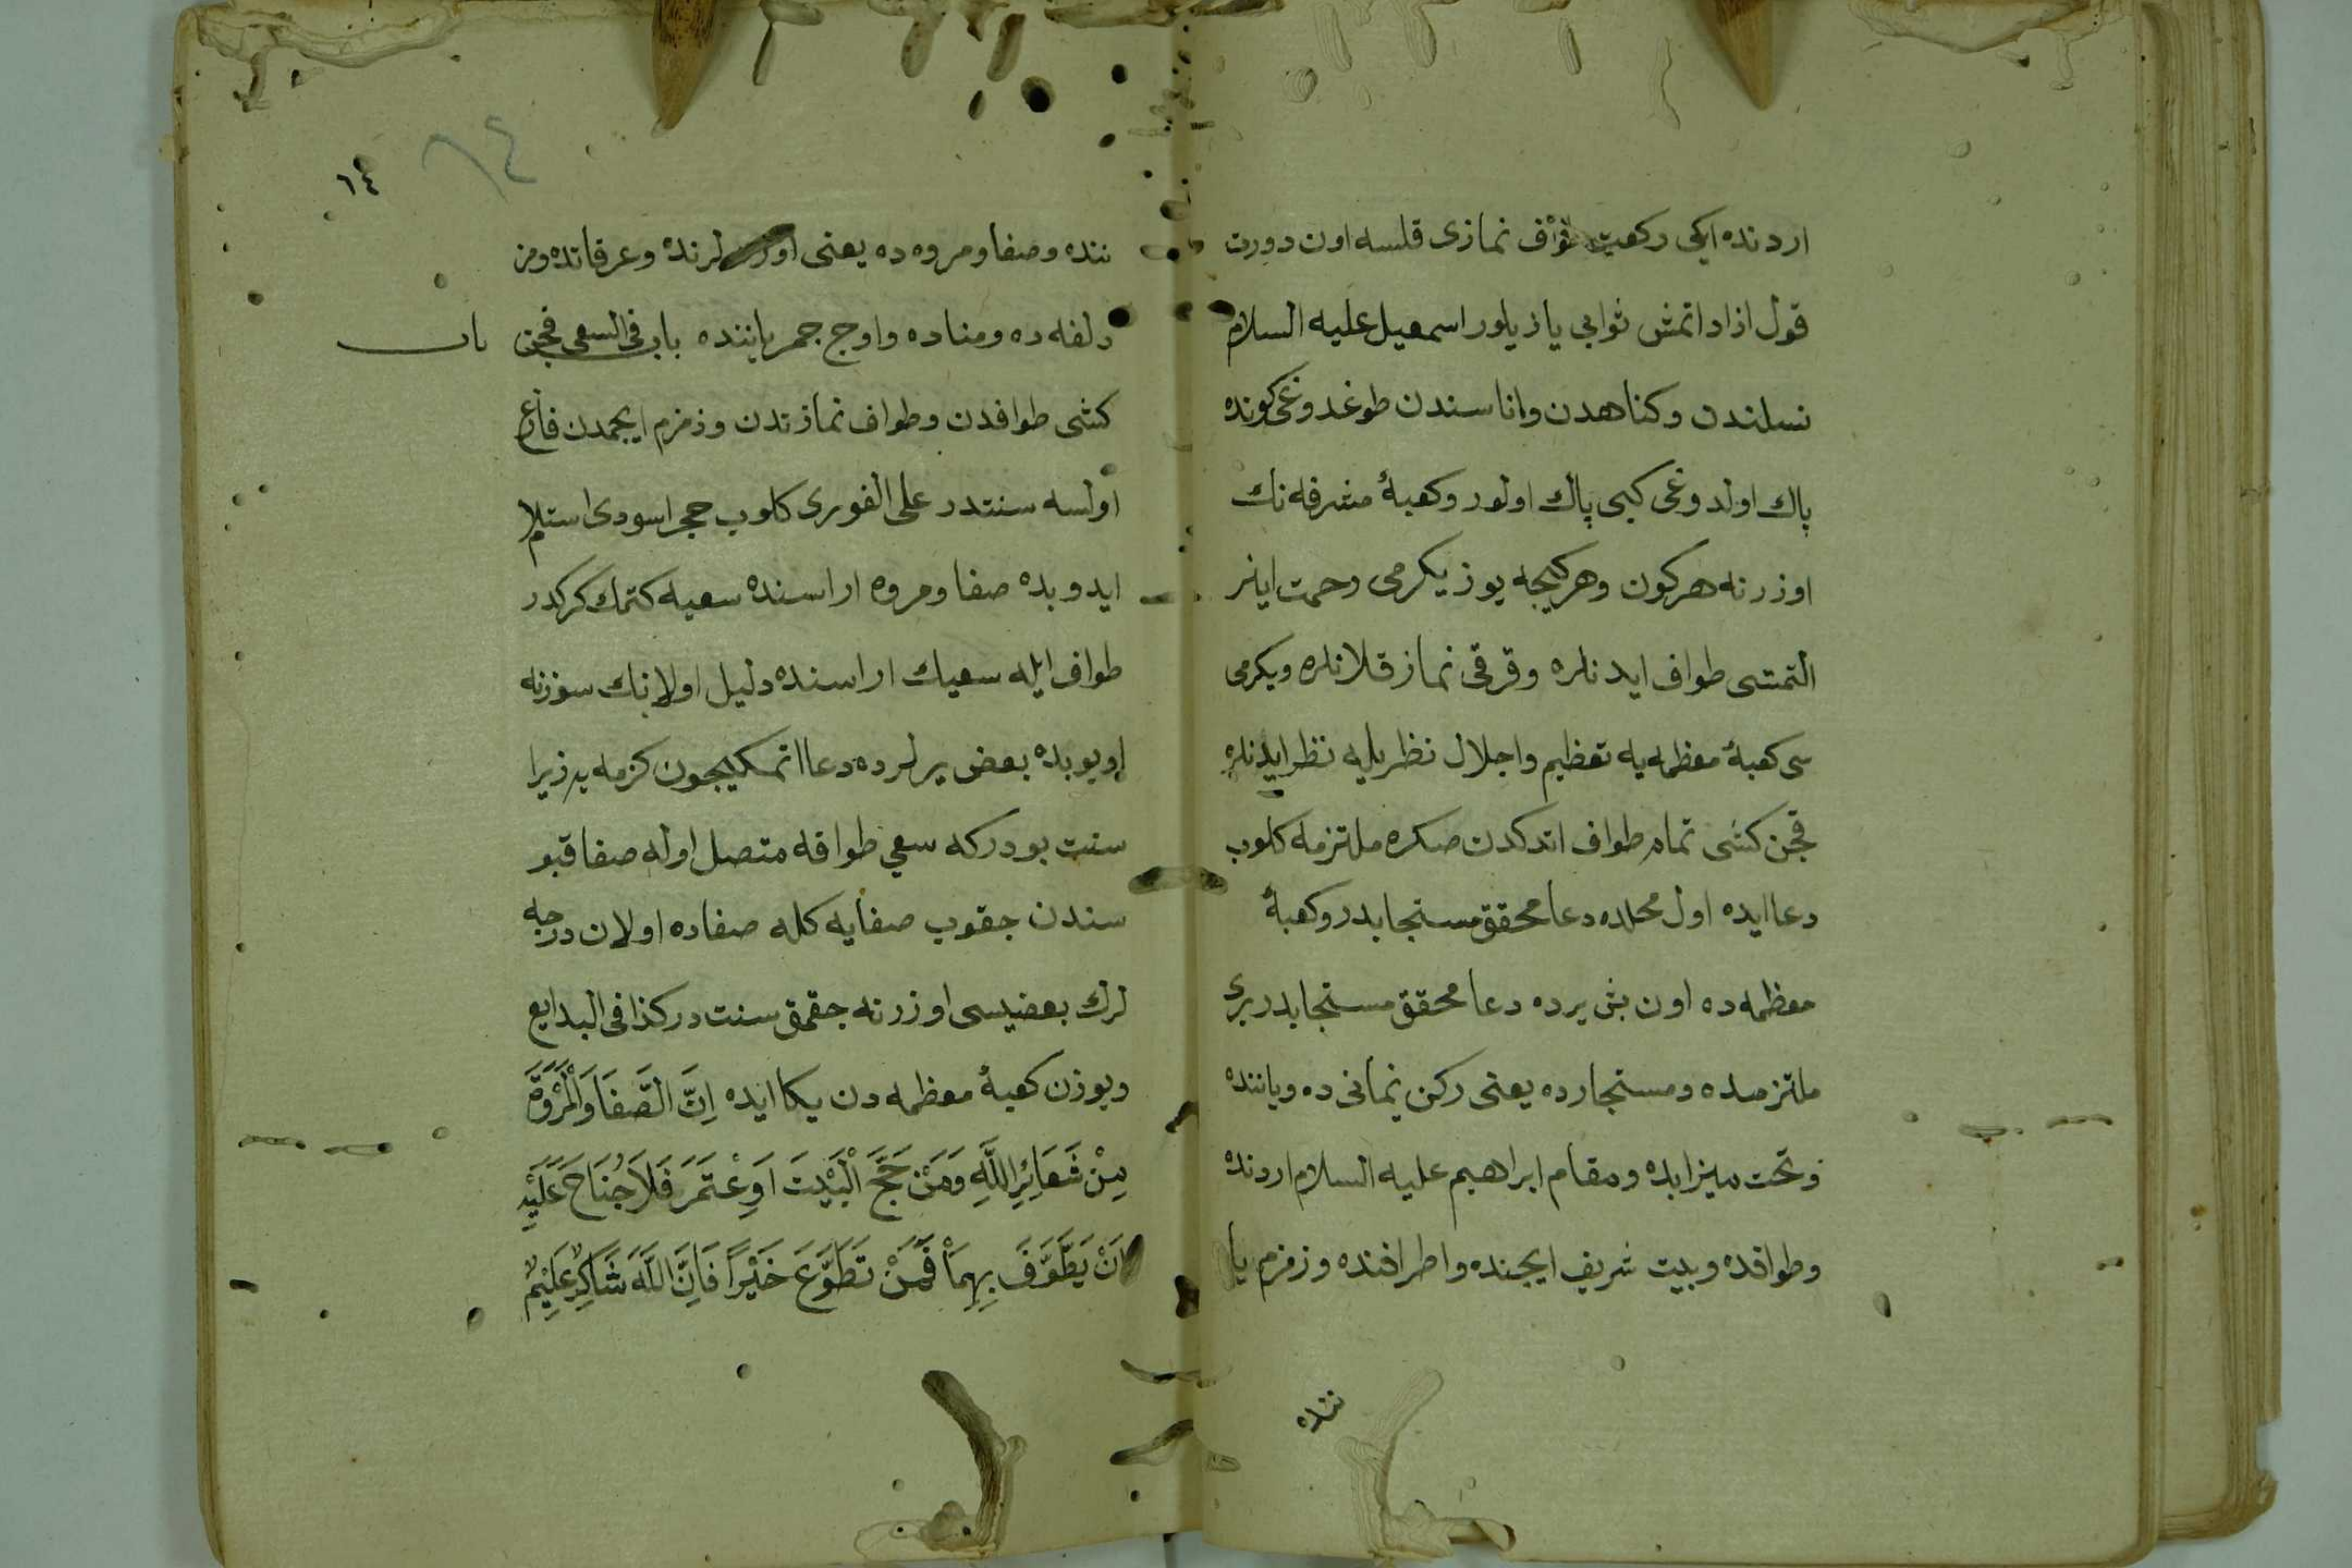 اردنده ايكى ركعت طواف نمازى قلسه اون دورت
قول ازاد اتمش ثوابى يازيلور اسمعيل عليه السلام
نسلندن وكناهدن واناسندن طوغدوغى كونده
پاك اولدوغى كبى پاك اولور وكعبهٔ مشرفه نك
اوزرنه هر كون وهر كيجه يوز يكرمى رحمت اينر
التمشى طواف ايدنلره وقرقى نماز قلانلره ويكرمى
سى كعبهٔ معظمه يه تعظيم واجلال نظريله نظر ايدنلره
قچن كشى تمام طواف اتدكدن صكره ملتزمه كلوب
دعا ايده اول محلده دعا محقق مستجابدر وكعبهٔ
معظمه ده اون بش يرده دعا محقق مستجابدر برى
ملتزمده ومستجارده يعنى ركن يمانى ده ويانننده
وتحت ميزابده ومقام ابراهيم عليه السلام اردنده
وطوافده وبيت شريف ايچنده واطرافنده وزمزم يا
ننده
١٤
٦٤
ننده وصفا ومروه ده يعنى اوزرلرنده وعرفاتده ومز
دلفه ده ومناده واوج جمر ياننده باب فى السعى قچن
باب
كشى طوافدن وطواف نمازندن وزمزم ايچمدن فارغ
اولسه سنتدر على الفورى كلوب حجر اسودى استلام
ايدوبده صفا ومروه اراسنده سعيه كتمك كركدر
طواف ايله سعيك اراسنده دليل اولانك سوزنه
اويوبده بعض يرلرده دعا اتمكيچون كزميه زيرا
سنت بودركه سعى طوافه متصل اوله صفا قپو
سندن چقوب صفايه كله صفاده اولان درجه
لرك بعضيسى اوزرنه چقمق سنت در كذا فى البدايع
ويوزن كعبهٔ معظمه دن يكا ايده اِنَّ الصَّفَا وَالْمَرْوَةَ
مِنْ شَعَائِرِ اللّٰهِ وَمَنْ حَجَّ الْبَيْتَ اَوِ عْتَمَرَ فَلَا جُنَاحَ عَلَيْهِ
اَنْ يَطَّوَّفَ بِهِمَا فَمَنْ تَطَوَّعَ خَيْرًا فَاِنَّ اللّٰهَ شَاكِرٌ عَلِيْمٌ